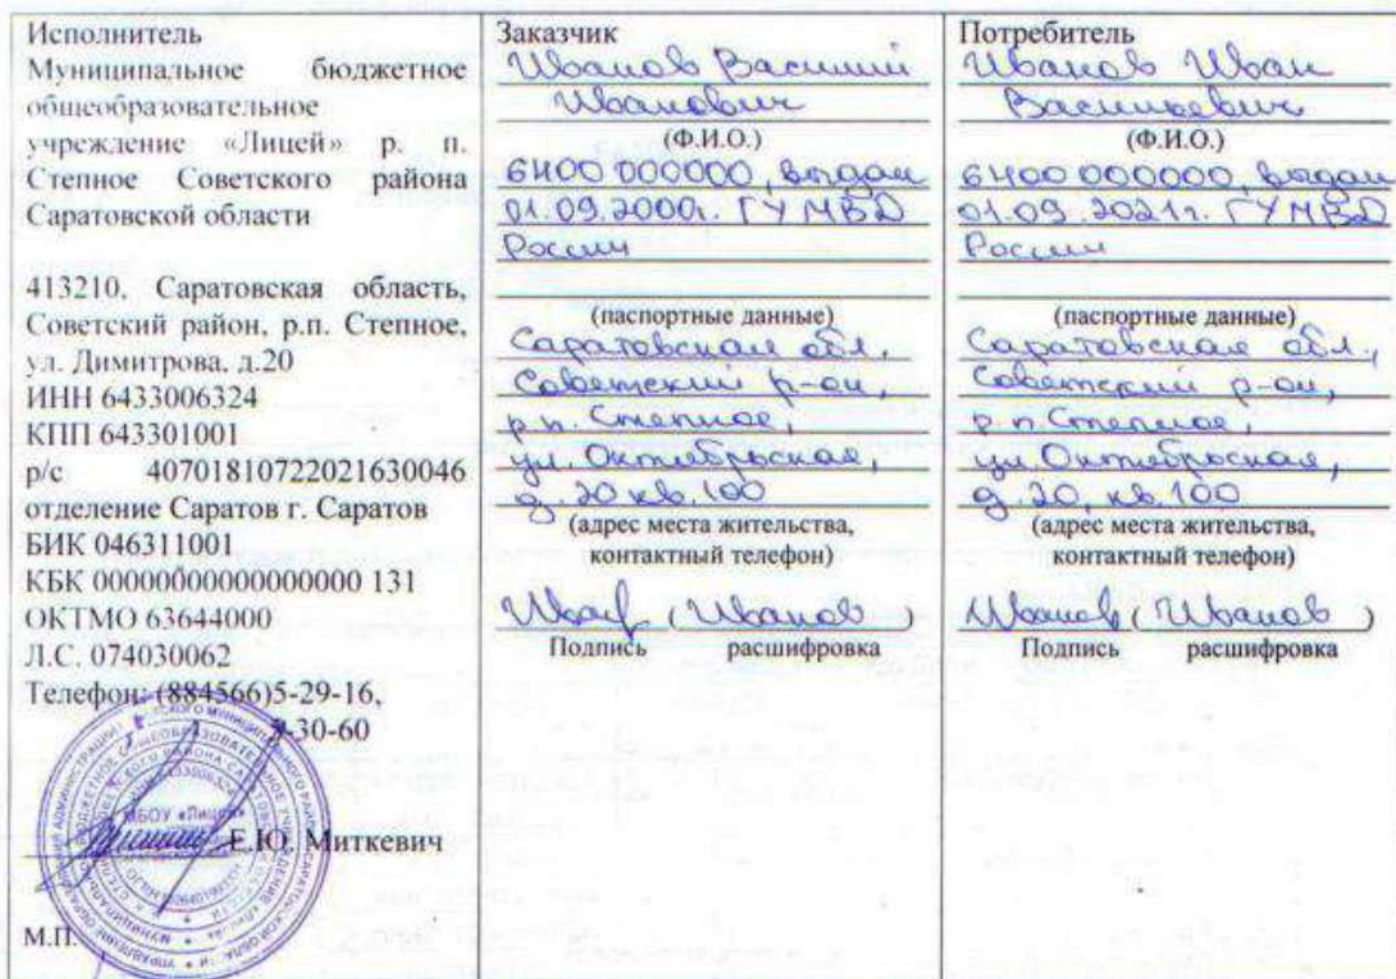 Исполнитель
Муниципальное бюджетное
общеобразовательное
учреждение «Лицей» р. п.
Степное Советского района
Саратовской области
413210, Саратовская область,
Советский район, р.п. Степное,
ул. Димитрова, д.20
ИНН 6433006324
КПП 643301001
р/с 40701810722021630046
отделение Саратов г. Саратов
БИК 046311001
КБК 00000000000000000 131
ОКТМО 63644000
Л.С. 074030062
Телефон: (884566)5-29-16,
5-30-60
МБОУ «Лицей»
Е.Ю. Миткевич
М.П.
Заказчик
Иванов Василий
Иванович
(Ф.И.О.)
6400 000000, выдан
01.09.2000г. ГУ МВД
России
(паспортные данные)
Саратовская обл.,
Советский р-он,
р.п. Степное,
ул. Октябрьская,
д. 20 кв. 100
(адрес места жительства,
контактный телефон)
(Иванов)
Подпись расшифровка
Потребитель
Иванов Иван
Васильевич
(Ф.И.О.)
6400 000000, выдан
01.09.2021г. ГУ МВД
России
(паспортные данные)
Саратовская обл.,
Советский р-он,
р.п. Степное,
ул. Октябрьская,
д. 20, кв. 100
(адрес места жительства,
контактный телефон)
Иванов (Иванов)
Подпись расшифровка